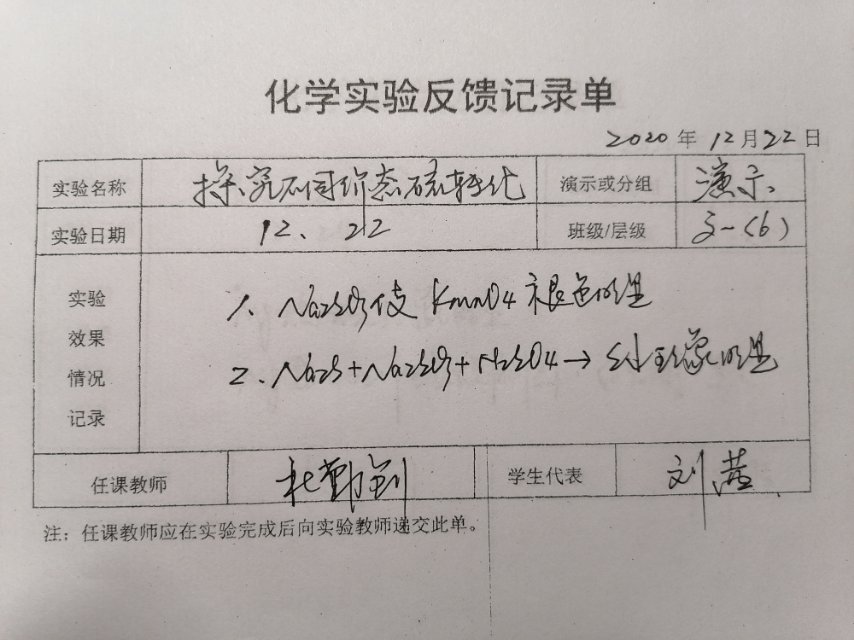 化学实验反馈记录单
2020 年 12 月 22 日
实验名称 探究不同价态硫转化 演示或分组 演示
实验日期 12、22 班级/层级 高一(6)
实验
效果
情况
记录
1、Na2SO3使 KmnO4 褪色明显
2、Na2S+Na2SO3+H2SO4→ 现象明显
任课教师 杜勤剑 学生代表 刘茜
注：任课教师应在实验完成后向实验教师递交此单。